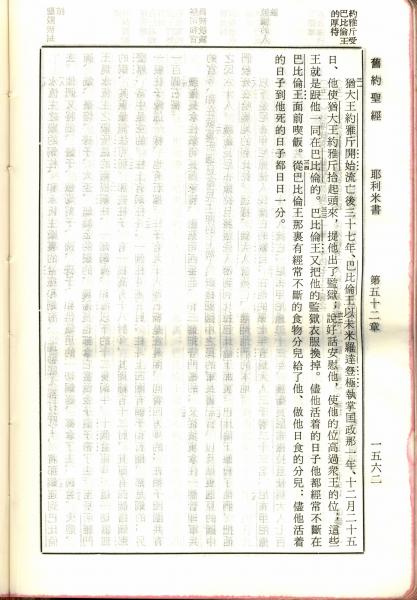 舊約聖經　耶利米書　第五十二章　一五六二
約雅斤受
巴比倫王
的厚待
猶大王約雅斤開始流亡後三十七年、巴比倫王以未米羅達登極執掌國政那一年、十二月二十五
日、他使猶大王約雅斤抬起頭來，提他出了監獄；說好話安慰他，使他的位高過衆王的位；這些
王就是跟他一同在巴比倫的。巴比倫王又把他的監獄衣服換掉。儘他活着的日子他都經常不斷在
巴比倫王面前喫飯。從巴比倫王那裏有經常不斷的食物分兒給了他、做他日食的分兒：儘他活着
的日子到他死的日子都日日一分。